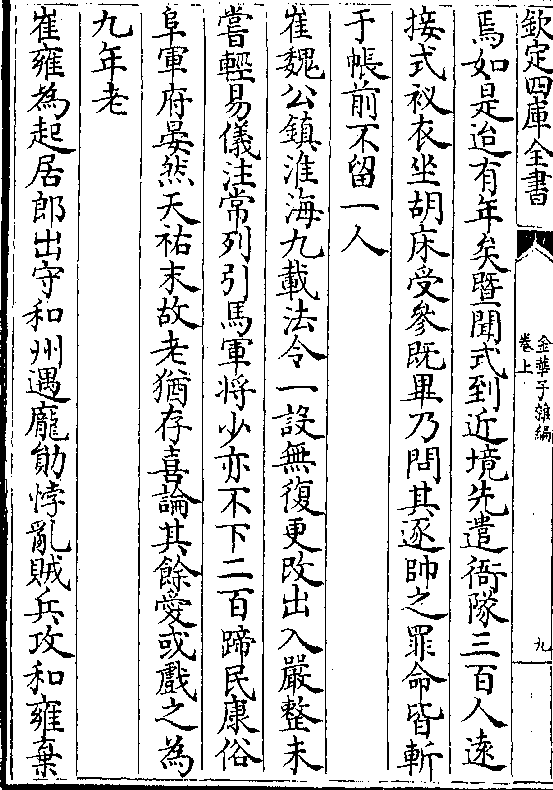 欽定四庫全書
金華子雜編
卷上
九
焉如是迨有年矣暨聞式到近境先遣衙隊三百人遠
接式衩衣坐胡床受參既畢乃問其逐帥之罪命皆斬
于帳前不留一人
崔魏公鎮淮海九載法令一設無復更改出入嚴整未
嘗輕易儀注常列引馬軍將少亦不下二百蹄民康俗
阜軍府晏然天祐末故老猶存喜論其餘愛或戲之為
九年老
崔雍為起居郎出守和州遇龐勛悖亂賊兵攻和雍棄